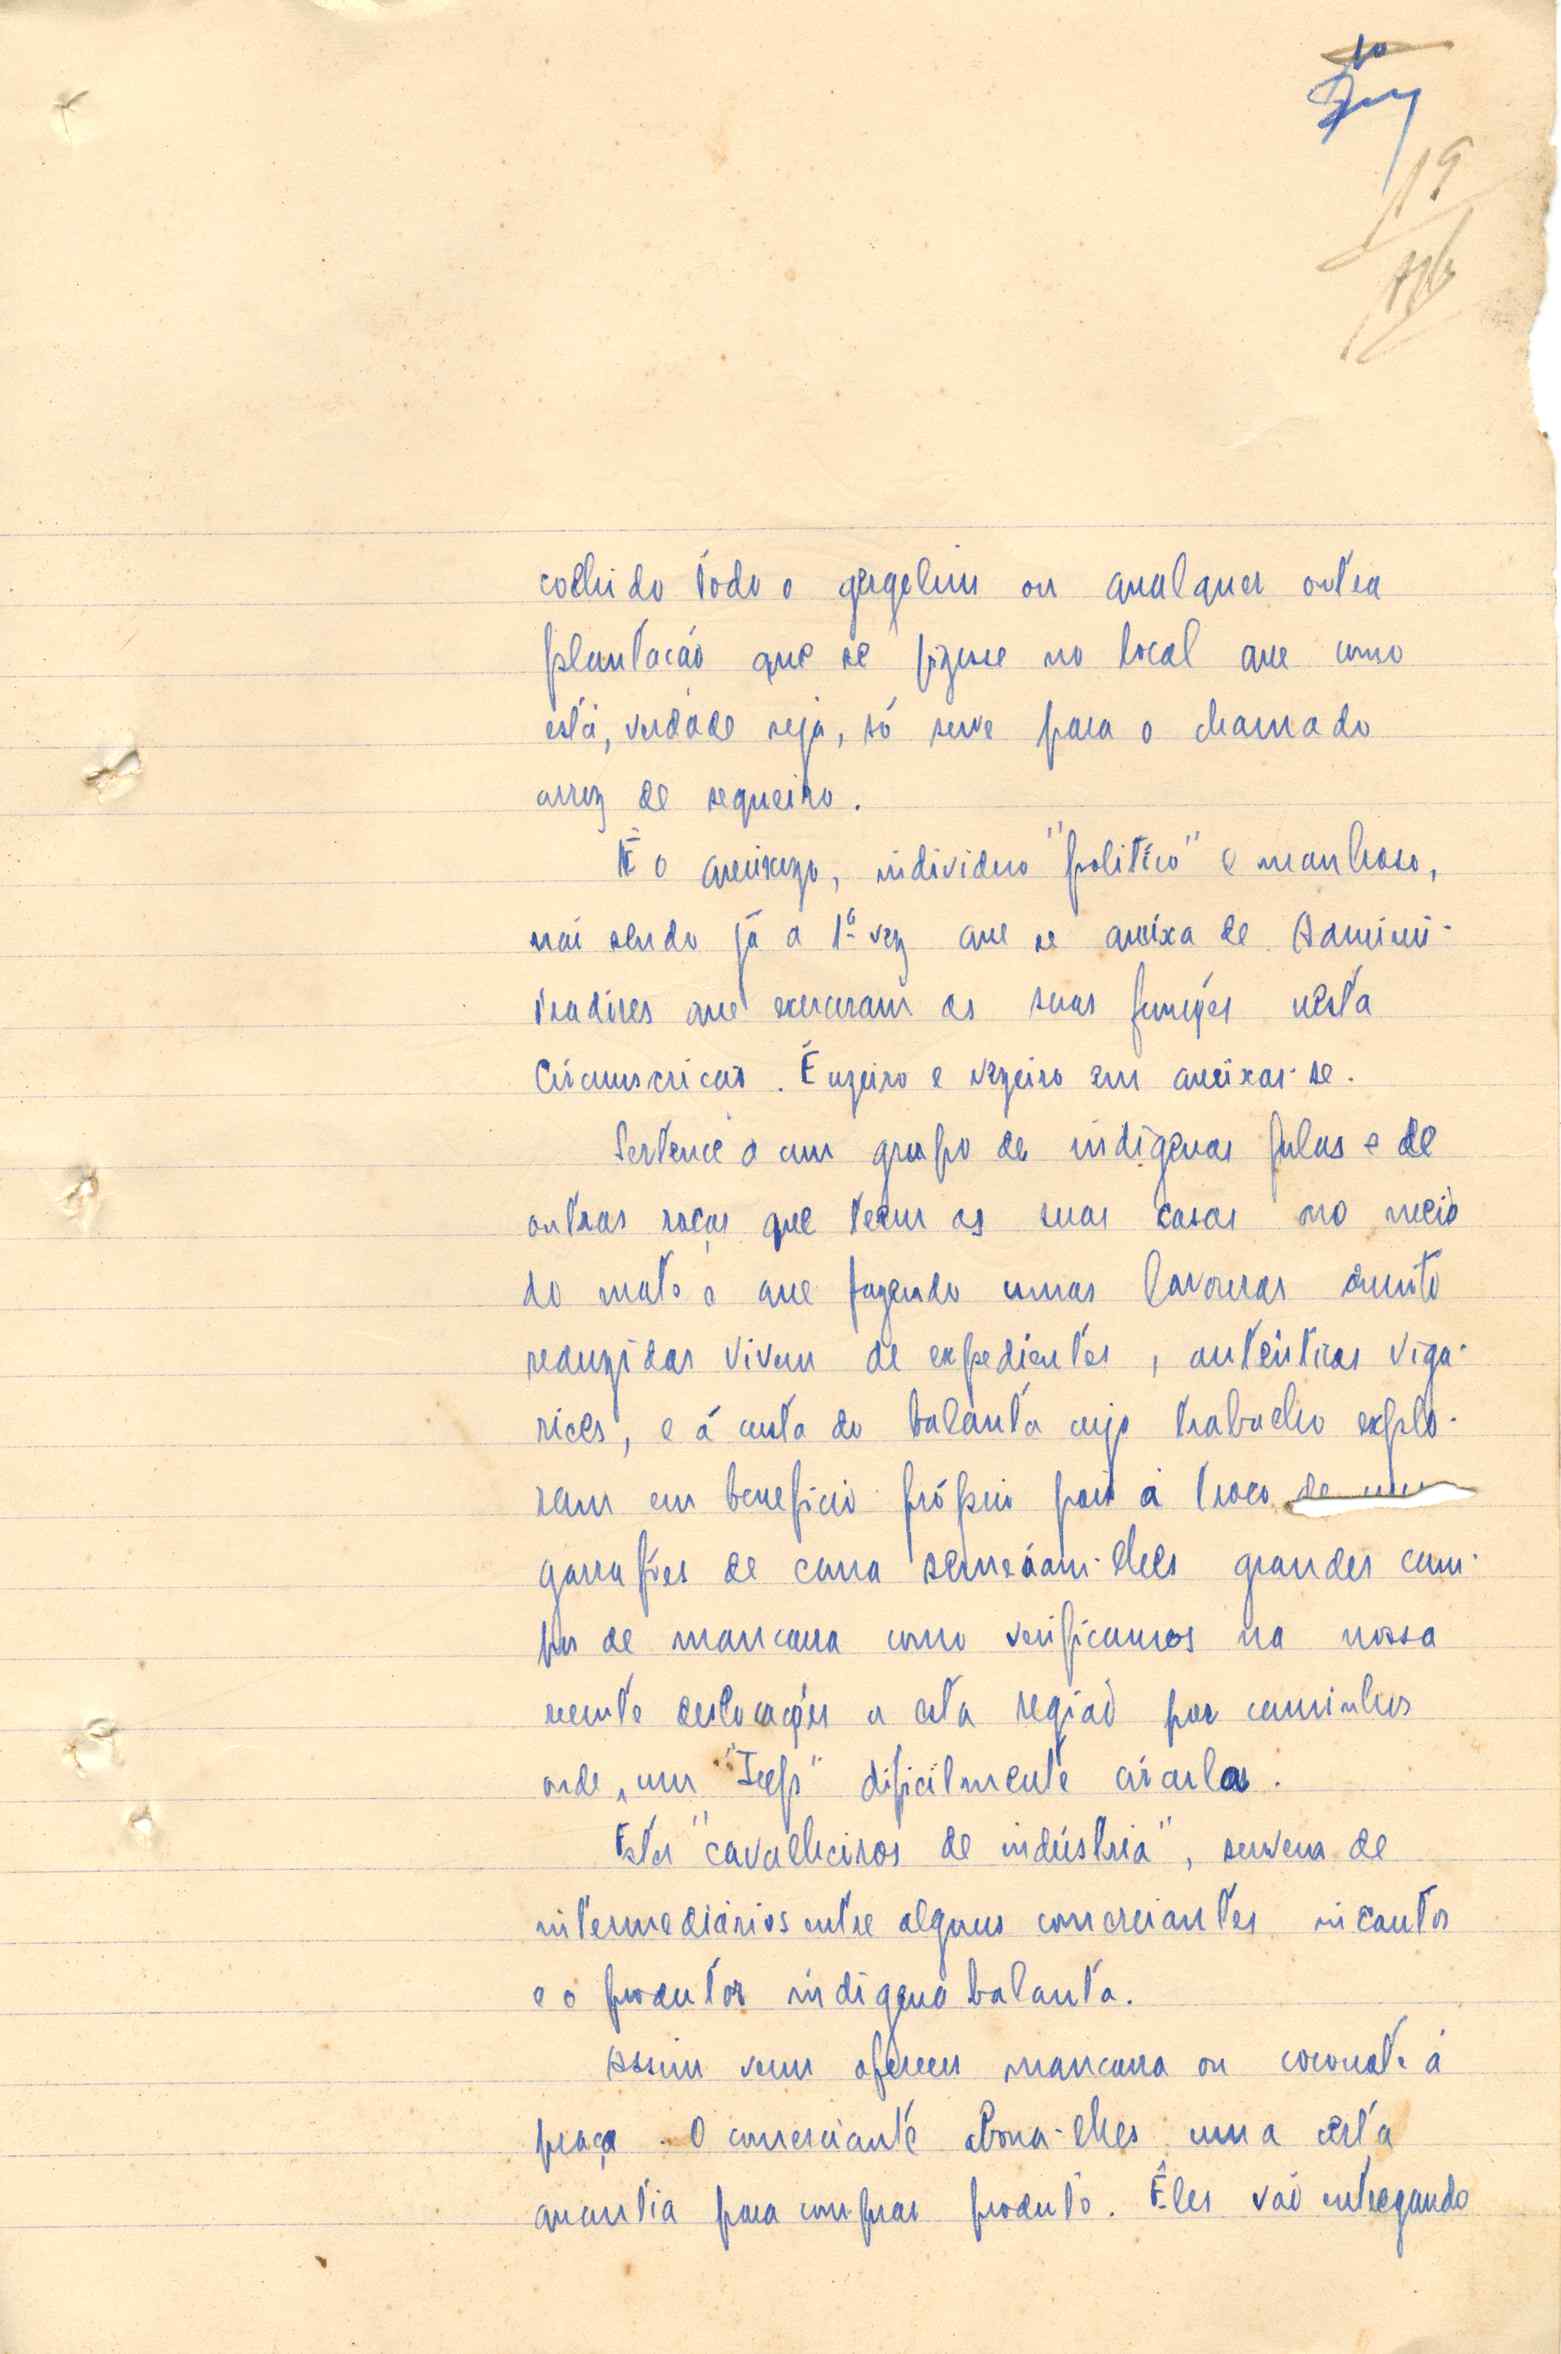 10
19
colhido todo o gergelim ou qualquer outra
plantação que se fizesse no local que como
está, verdade seja, só serve para o chamado
arroz de sequeiro.
É o queixoso, individuo "politico" e manhoso,
não sendo já a 1ª vez que se queixa de Adminis-
tradores que exerceram as suas funções nesta
Circunscrição. É uzeiro e vezeiro em queixar-se.
Pertence a um grupo de indigenas fulas e de
outras raças que teem as suas casas no meio
do mato e que fazendo umas lavouras muito
reduzidas vivem de expedientes, autênticas viga-
rices, e á custa do balanta cujo trabalho explo-
ram em beneficio próprio pois a troco de um
garrafões de cana semeiam-lhes grandes cam-
pos de mancarra como verificamos na nossa
recente deslocações a esta região por caminhos
onde, um "Jeep" dificilmente circula.
Estes "cavalheiros de indústria", servem de
intermediários entre alguns comerciantes incautos
e o produtor indigena balanta.
Assim vem oferecer mancarra ou coconote á
praça. O comerciante abona-lhes uma certa
quantia para comprar produto. Êles vão entregando